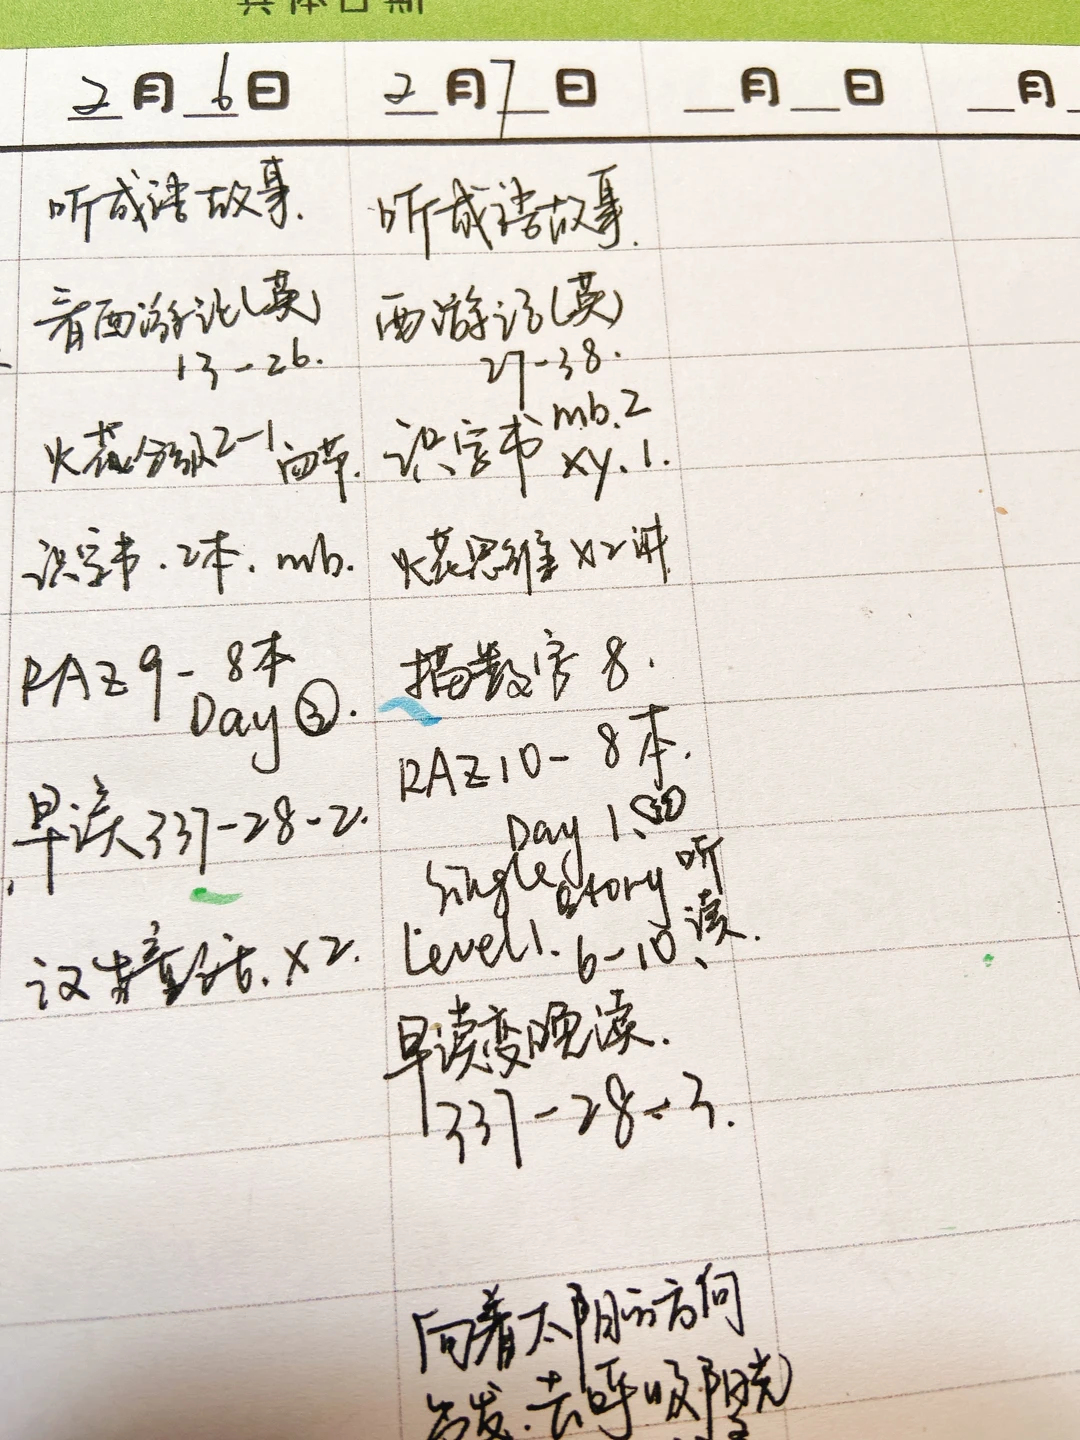 具体日期
2月6日
听成语故事.
看西游记(英)
13-26.
火花分级2-1 四节.
识字书.2本.mb.
RAZ 9- 8本
Day ③.
早读337-28-2.
汉字童话.x2.
2月7日
听成语故事.
西游记(英)
27-38.
识字书 mb.2
xy.1.
火花思维x2讲
描数字 8.
RAZ10- 8本.
Day 1.
Single story 听
Level1. 6-10、读.
早读变晚读.
337-28-3.
向着太阳的方向
出发.去呼吸阳光
月 日
月